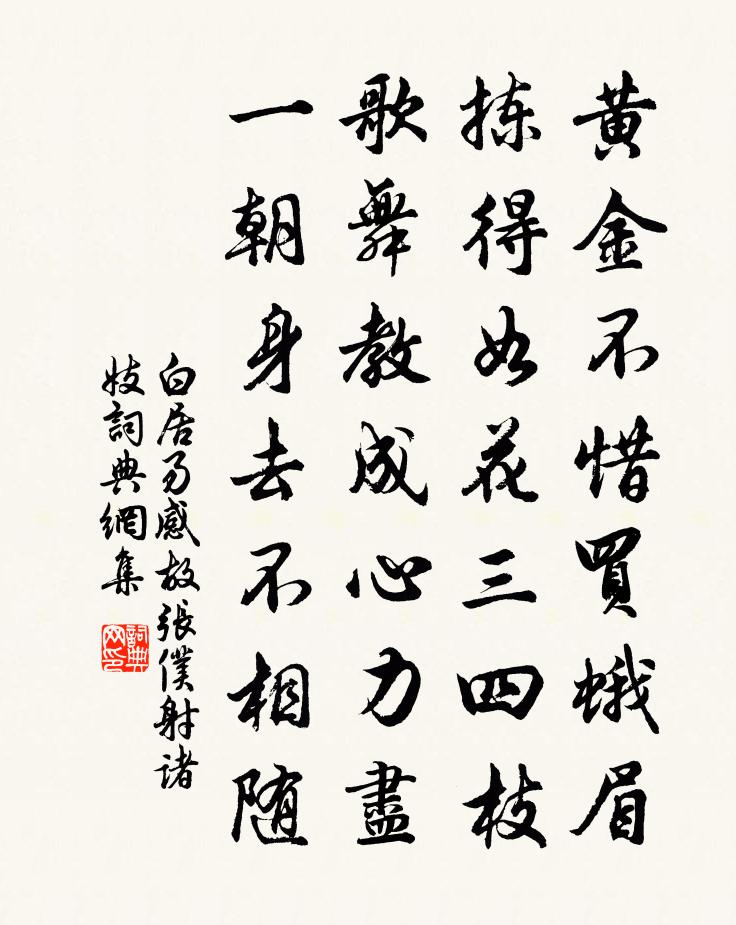 黄金不惜買蛾眉
拣得如花三四枝
歌舞教成心力盡
一朝身去不相随
白居易感故張僕射諸
妓詞典網集
詞典网印